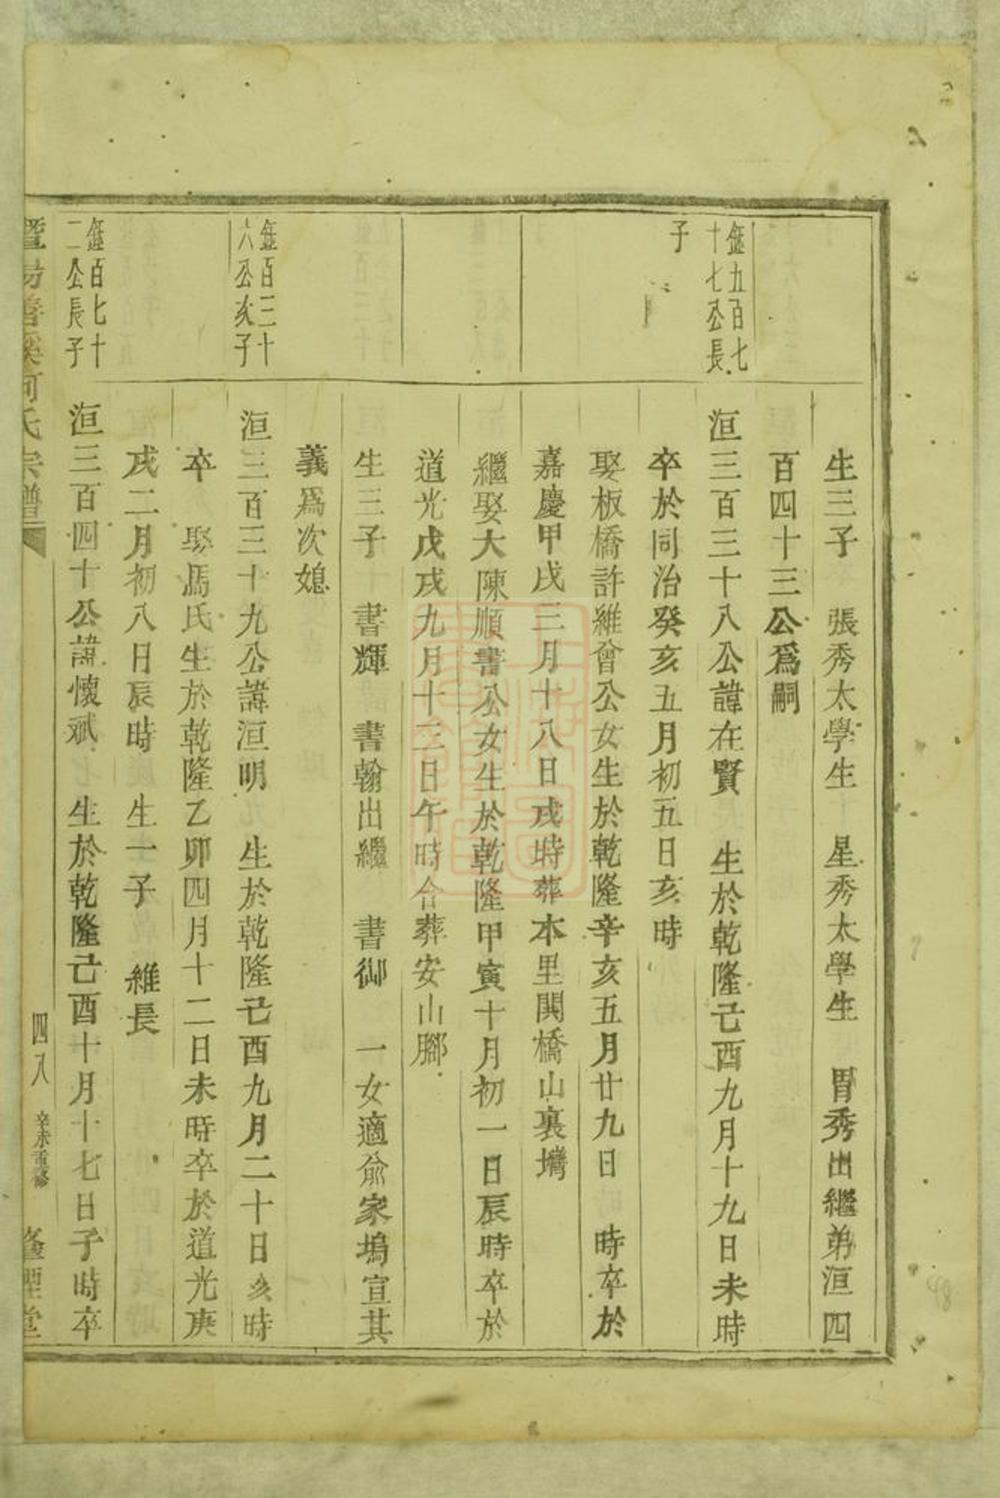 生三子　張秀太學生　星秀太學生　胃秀出繼弟洹四
百四十三公爲嗣
鋐五百七
十七公長
子
洹三百三十八公諱在賢　生於乾隆己酉九月十九日未時
卒於同治癸亥五月初五日亥時
娶板橋許維會公女生於乾隆辛亥五月廿九日　時卒於
嘉慶甲戌三月十八日戌時葬本里関橋山裏塆
繼娶大陳順書公女生於乾隆甲寅十月初一日辰時卒於
道光戊戌九月十三日午時合葬安山腳
生三子　書輝　書翰出繼　書御　一女適俞家塢宣其
義爲次媳
鋐百三十
六公次子
洹三百三十九公諱洹明　生於乾隆己酉九月二十日亥時
卒　娶馬氏生於乾隆乙卯四月十二日未時卒於道光庚
戌二月初八日辰時　生一子　維長
鋐百七十
二公長子
洹三百四十公諱懷斌　生於乾隆己酉十月十七日子時卒
暨陽善溪何氏宗譜
四八
辛未重修
堂